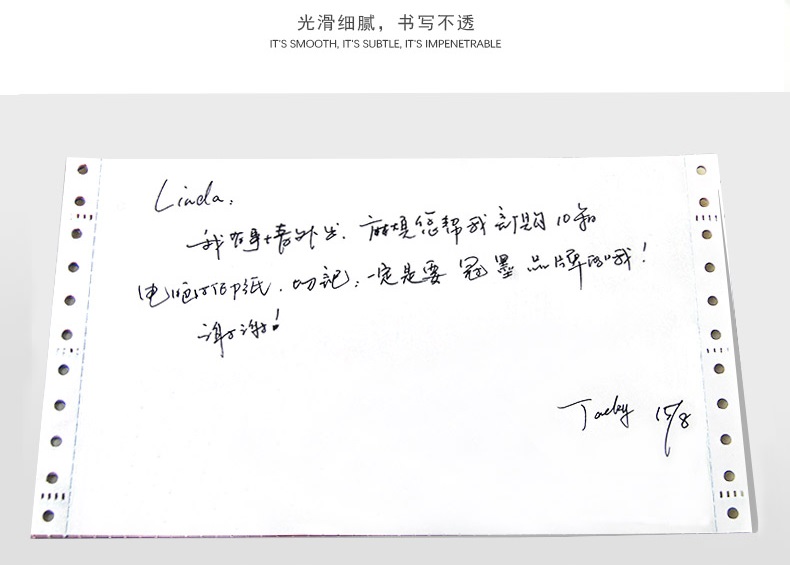 光滑细腻，书写不透
IT'S SMOOTH, IT'S SUBTLE, IT'S IMPENETRABLE
Linda,
我有事情外出，麻烦您帮我订购10箱
电脑打印纸，切记，一定是要冠墨品牌的哦！
谢谢！
Jacky 15/8